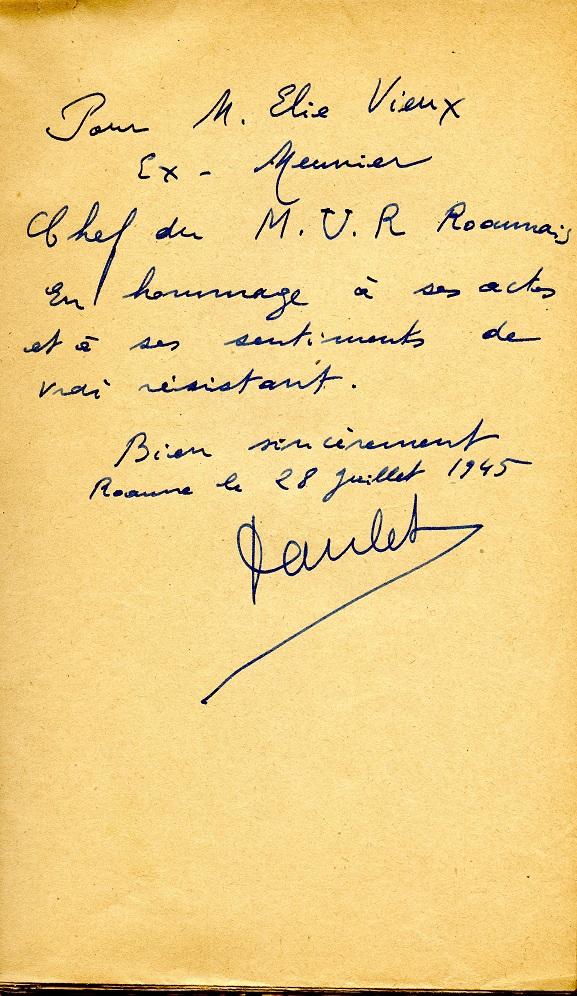 Pour M. Elie Vieux
Ex - Meunier
Chef du M.U.R Roannais
En hommage à ses actes
et à ses sentiments de
vrai résistant.
Bien sincèrement
Roanne le 28 Juillet 1945